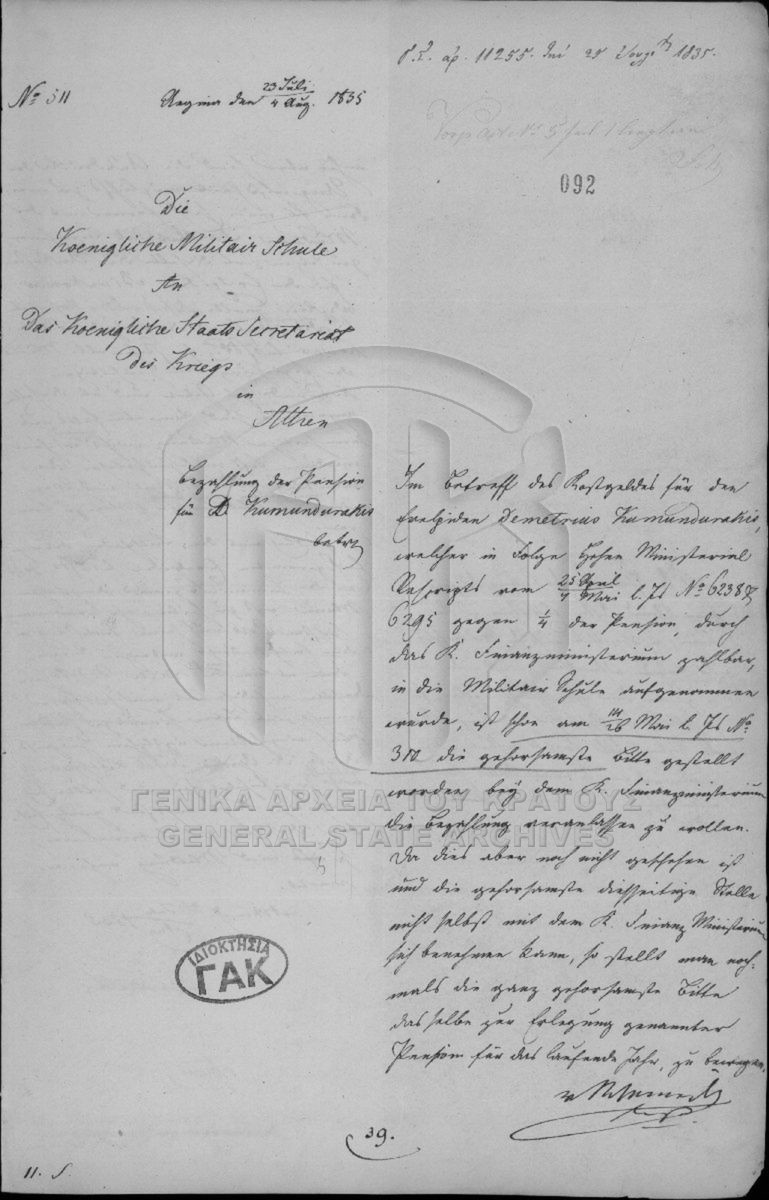 ap. 11255. 25 1835.
No 511
Aegina den 23 Juli / 4 Aug. 1835
092
Die
Koenigliche Militair Schule
An
Das Koenigliche Staats Secretariat
Des Kriegs
in
Athen
Bezahlung der Pension
für D. Kumundurakis
betr.
Im Betreff des Kostgeldes für den
Evelpiden Demetrius Kumundurakis,
welcher in Folge hohen Ministerial
Rescripts vom 25 April / 7 Mai l. Js No 6238 &
6295 gegen 1/4 der Pension, durch
das K. Finanzministerium zahlbar,
in die Militair Schule aufgenommen
wurde, ist schon am 14/26 Mai l. Js No
310 die gehorsamste Bitte gestellt
worden bey dem K. Finanzministerium
die Bezahlung veranlassen zu wollen.
Da dies aber noch nicht geschehen ist
und die gehorsamste diesseitige Stelle
nicht selbst mit dem K. Finanz Ministerium
sich benehmen kann, so stellt man noch-
mals die ganz gehorsamste Bitte
dasselbe zur Erlegung genannter
Pension für das laufende Jahr, zu bewegen.
ΓΕΝΙΚΑ ΑΡΧΕΙΑ ΤΟΥ ΚΡΑΤΟΥΣ
GENERAL STATE ARCHIVES
ΙΔΙΟΚΤΗΣΙΑ
ΓΑΚ
39.
11. S.